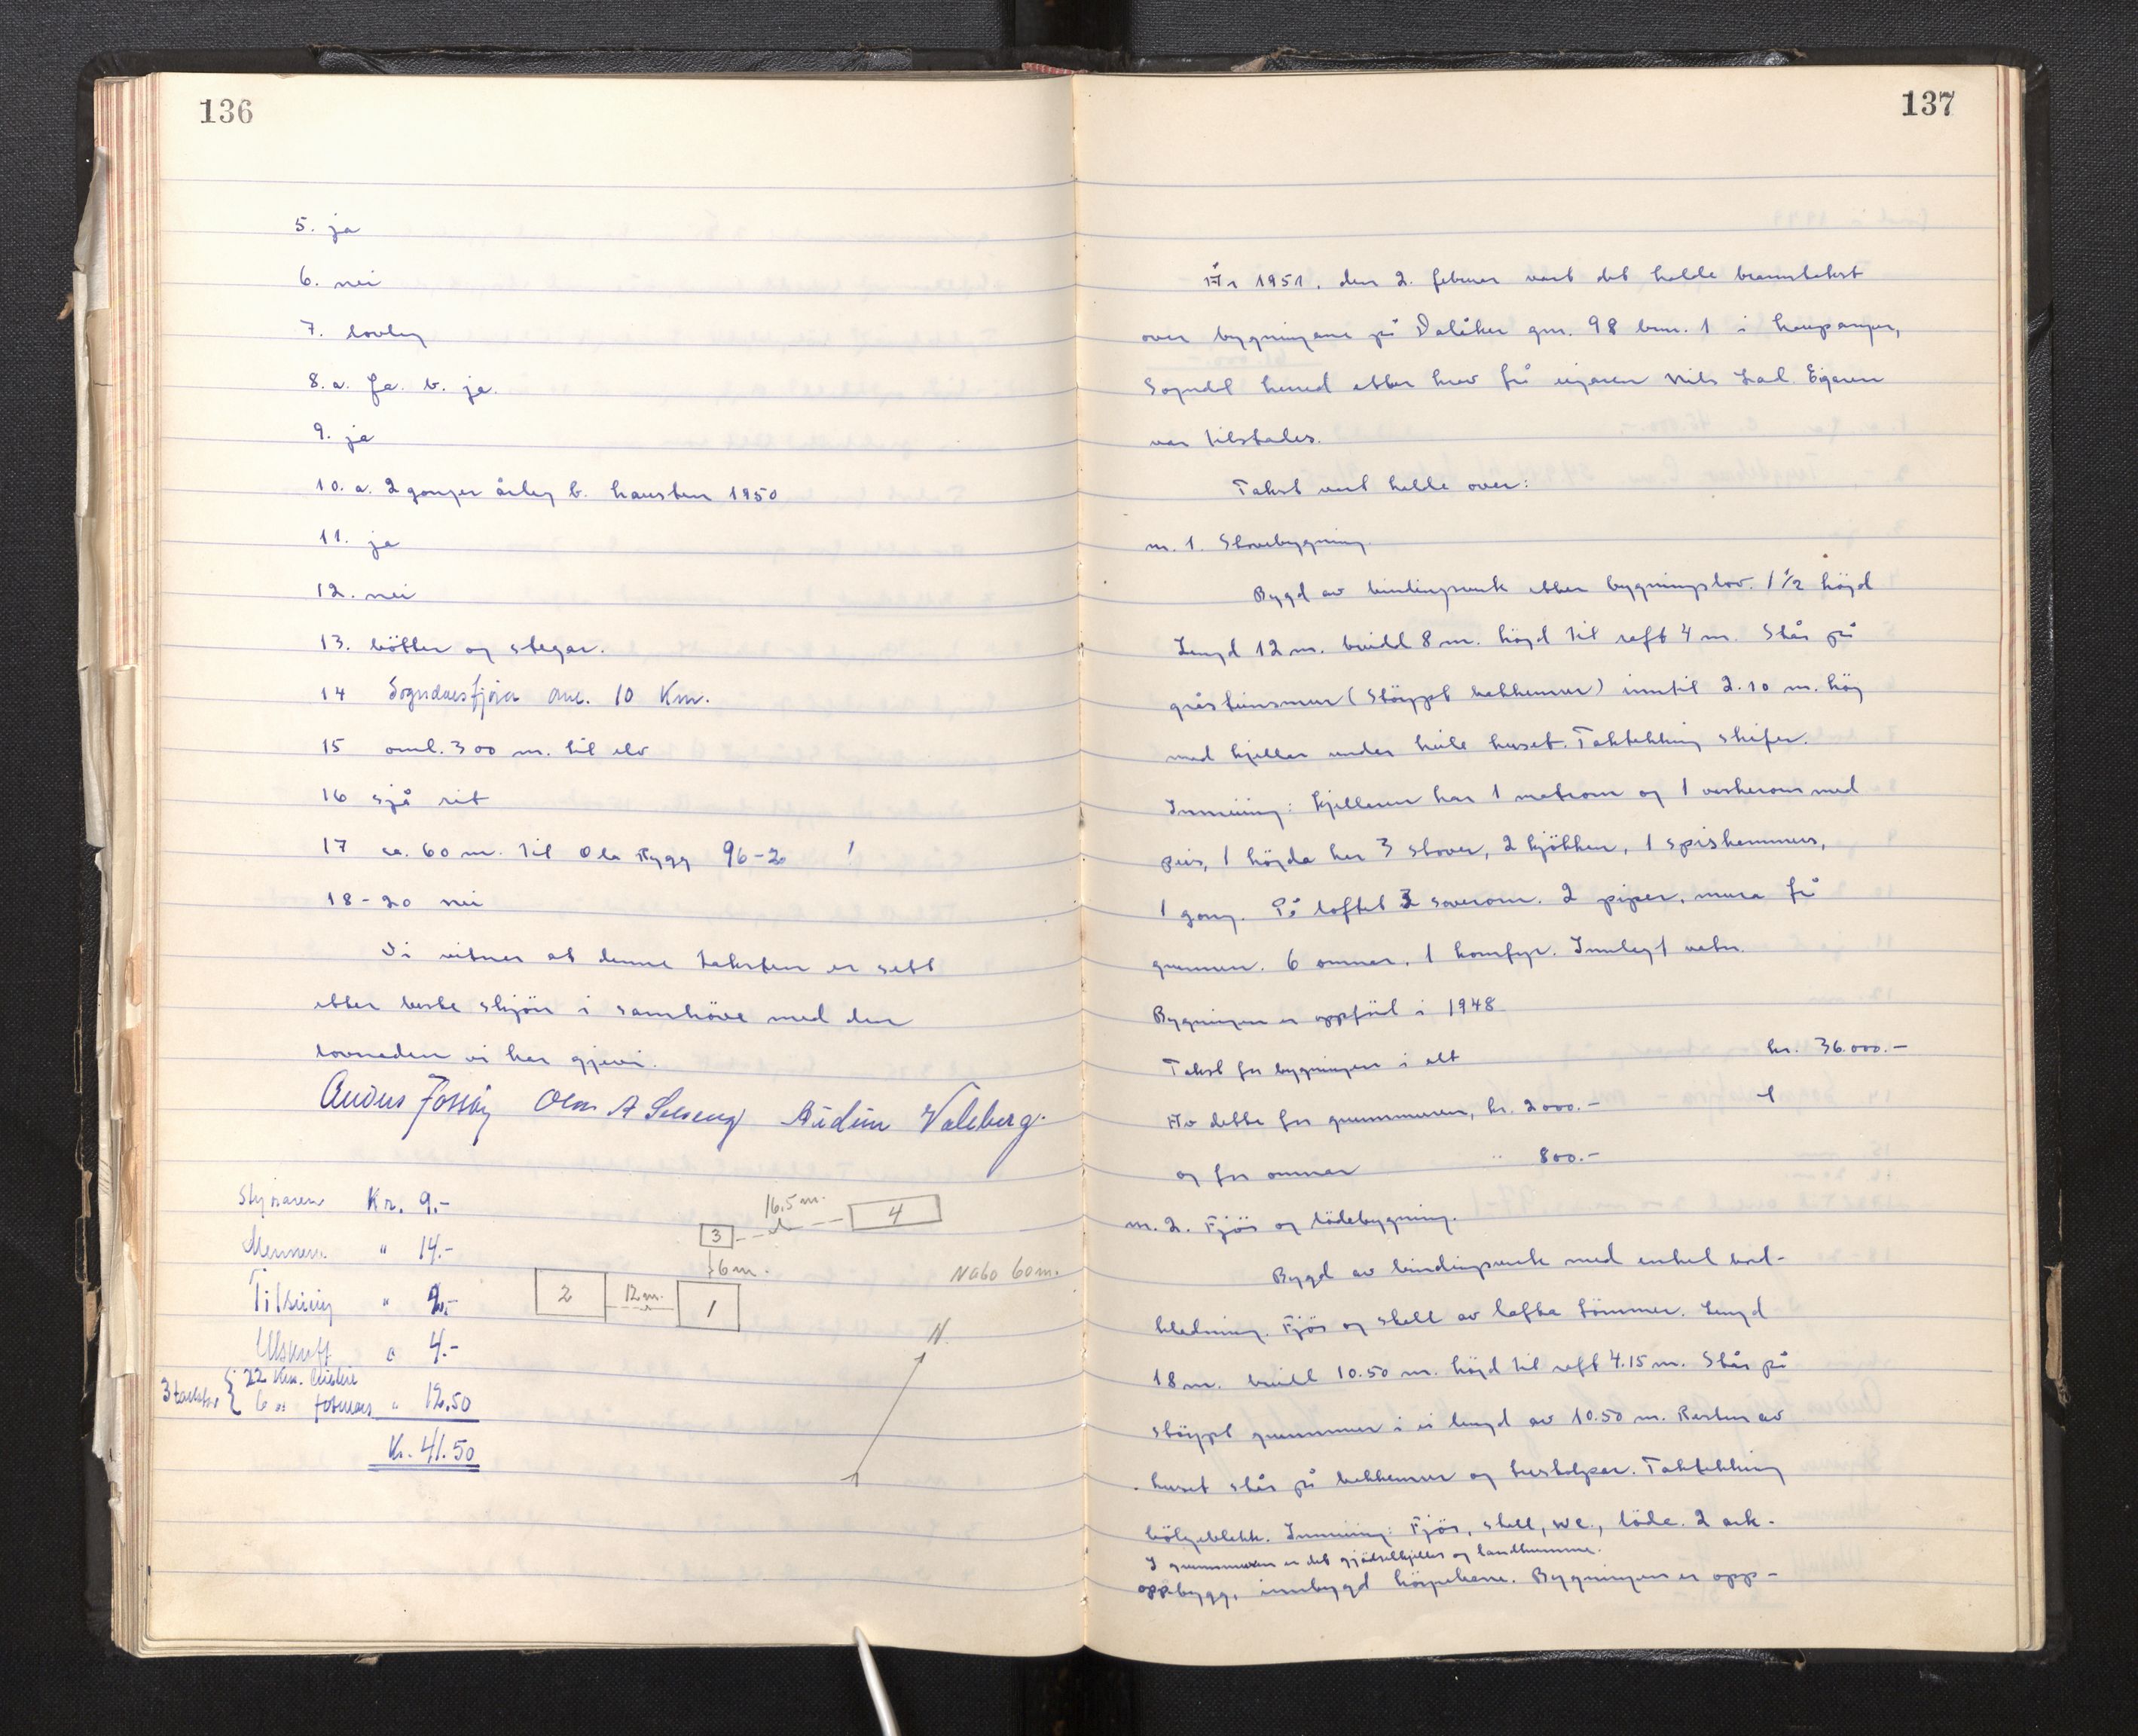 136
5. ja
6. nei
7. lovleg
8. a. ja. b. ja.
9. ja
10. a. 2 gonger årleg b. hausten 1950
11. ja
12. nei
13. bötter og stegar.
14 Sogndalsfjöra oml. 10 Km.
15 oml. 300 m. til elv
16 sjå rit
17 ca. 60 m. til Ola Rygg 96-20 !
18-20 nei
Vi vitner at denne taksten er sett
etter beste skjön i samhöve med den
lovnaden vi har gjevi.
A Selseng Audun Valeberg.
Styraren Kr. 9.-
Mennene " 14.-
" 2.-
Utskrift " 4.-
22 Km.
3 6 " " 12,50
Kr. 41.50
16.5 m.
4
3
6 m.
Nabo 60 m.
2
12 m.
1
N.
137
År 1951, den 2. februar vart det halde branntakst
over bygningane på Dalåker gnr. 98 bnr. 1 i Kaupanger,
Sogndal herad etter krav frå eigaren Nils Lad. Eigaren
var tilstades.
Takst vart halde over:
nr. 1. Stovebygning.
Bygd av bindingsverk etter bygningslov. 1 1/2 högd
Lengd 12 m. breidd 8 m. högd til raft 4 m. Står på
gråsteinsmur (stöypt bakkemur) inntil 2.10 m. hög
med kjellar under heile huset. Taktekking skifer.
Innreiing: Kjellaren har 1 matrom og 1 vaskerom med
peis, 1 högda har 3 stover, 2 kjökken, 1 spiskammers,
1 gang. På loftet 3 soverom. 2 piper, mura frå
grunnen. 6 omnar, 1 komfyr. Innlagt vatn.
Bygningen er oppförd i 1948
Takst for bygningen i alt kr. 36.000.-
Av dette for grunnmuren, kr. 2000.-
og for omnar " 800.-
nr. 2. Fjös og lödebygning.
Bygd av bindingsverk med enkel bord-
kledning. Fjös og stall av lafta tömmer. Lengd
18 m. breidd 10.50 m. högd til raft 4.15 m. Står på
stöypt grunnmur i ei lengd av 10.50 m. Resten av
huset står på bakkemur og trestolpar. Taktekking
bölgeblekk. Innreiing: Fjös, stall, wc., löda. 2 ark-
I grunnmuren er det gjödselkjellar og landkumme.
oppbygg, innbygd köyrebane. Bygningen er opp-